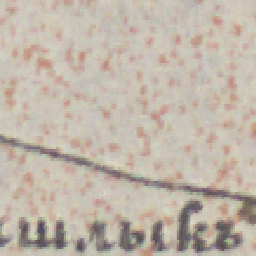 шлыкъ